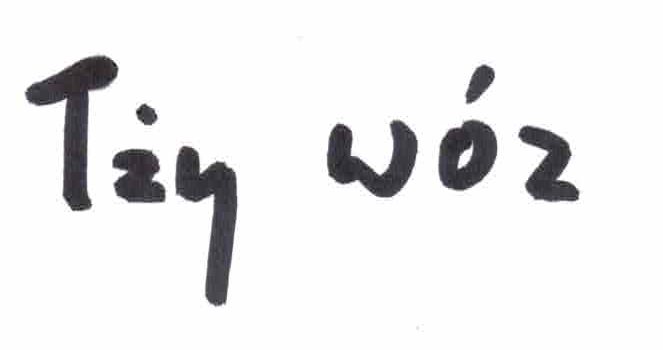 Tży wóz